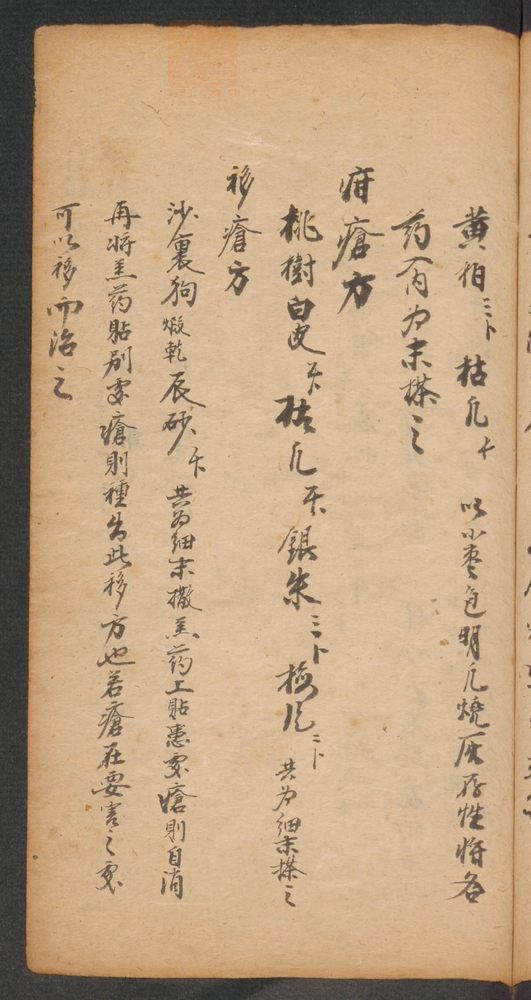 黄柏三卜 枯凡 以小枣包明凡燒灰存性將各
药合内为末搽之
疳瘡方
桃樹白皮 枯凡 銀朱三卜 梅片二卜 共为细末搽之
移瘡方
沙裏狗煅乾 辰砂 共为细末撒羔药上貼患処瘡則自消
再将羔药貼别処瘡則種出此移方也若瘡在要害之処
可以移而治之